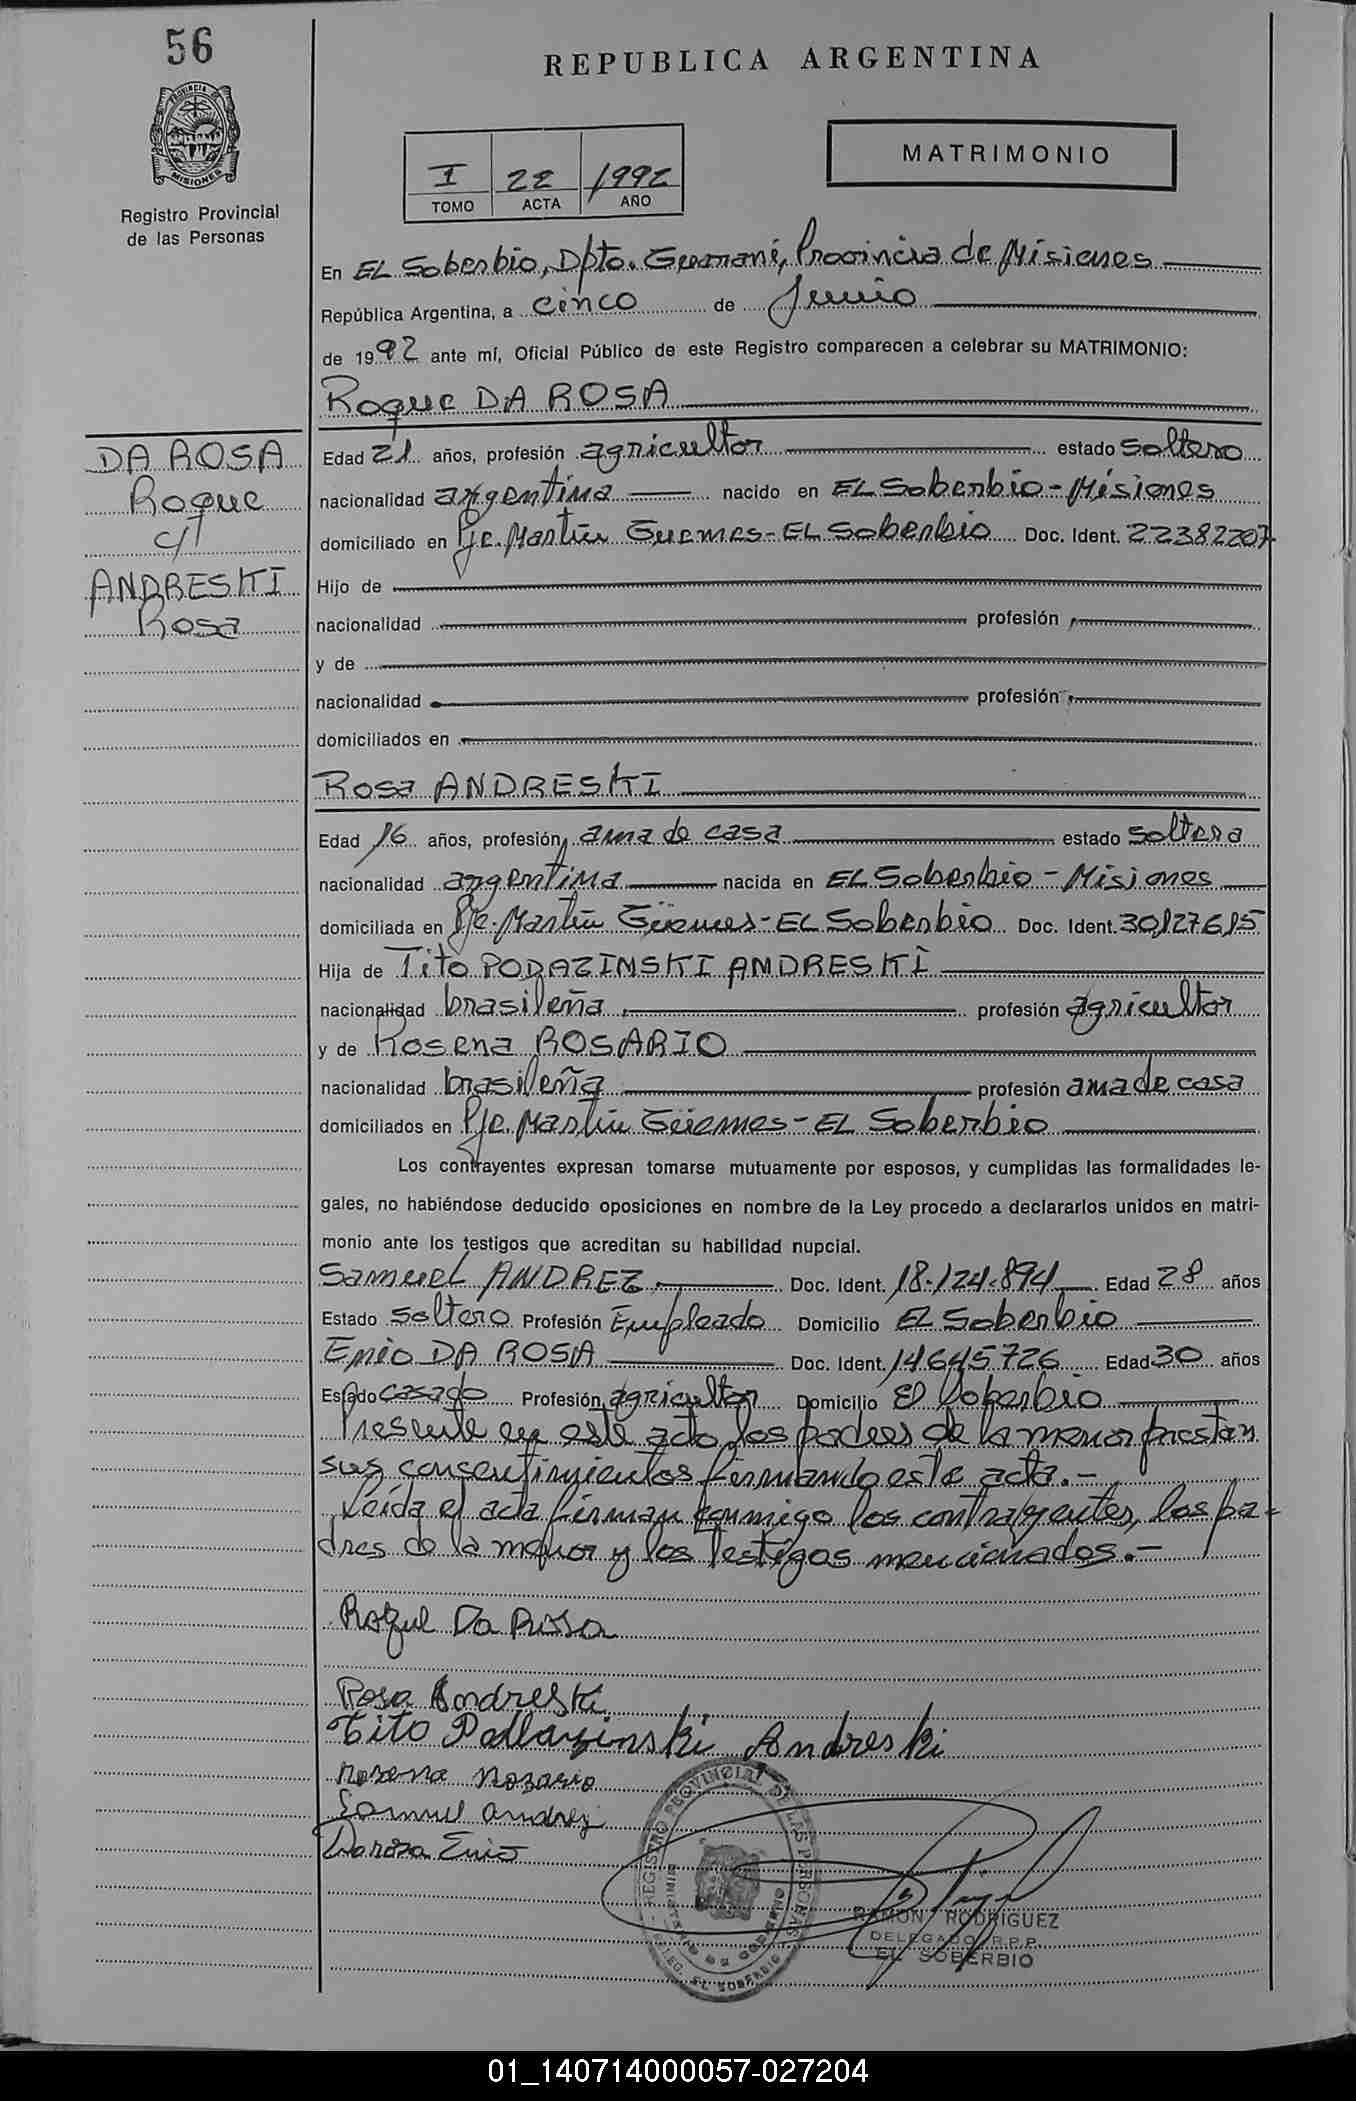 56
REPUBLICA ARGENTINA
PROVINCIA DE
MISIONES
Registro Provincial
de las Personas
I 22 1992
TOMO ACTA AÑO
MATRIMONIO
En EL Soberbio, Dpto. Guaraní, Provincia de Misiones
República Argentina, a cinco de Junio
de 1992 ante mí, Oficial Público de este Registro comparecen a celebrar su MATRIMONIO:
Roque DA ROSA
DA ROSA
Roque
c/
ANDRESKI
Rosa
Edad 21 años, profesión agricultor estado soltero
nacionalidad argentina nacido en EL Soberbio - Misiones
domiciliado en Pje. Martín Guemes - EL Soberbio Doc. Ident. 22382207
Hijo de
nacionalidad profesión
y de
nacionalidad profesión
domiciliados en
Rosa ANDRESKI
Edad 16 años, profesión ama de casa estado soltera
nacionalidad argentina nacida en EL Soberbio - Misiones
domiciliada en Pje. Martín Güemes - EL Soberbio Doc. Ident. 30127615
Hija de Tito PODAZINSKI ANDRESKI
nacionalidad brasileña profesión agricultor
y de Rosena ROSARIO
nacionalidad brasileña profesión ama de casa
domiciliados en Pje. Martín Güemes - EL Soberbio
Los contrayentes expresan tomarse mutuamente por esposos, y cumplidas las formalidades le-
gales, no habiéndose deducido oposiciones en nombre de la Ley procedo a declararlos unidos en matri-
monio ante los testigos que acreditan su habilidad nupcial.
Samuel ANDREZ Doc. Ident. 18.124.894 Edad 28 años
Estado soltero Profesión Empleado Domicilio EL Soberbio
Enio DA ROSA Doc. Ident. 14645726 Edad 30 años
Estado casado Profesión agricultor Domicilio El Soberbio
Presente en este acto los padres de la menor prestan
sus consentimientos firmando este acta.-
Leída el acta firman conmigo los contrayentes, los pa-
dres de la menor y los testigos mencionados.-
Roque Da Rosa
Rosa Andreski
Tito Podlazinski Andreski
Rosena Rosario
Samuel Andrez
Darosa Enio
REGISTRO PROVINCIAL DE LAS PERSONAS
MINISTERIO DE GOBIERNO
EL SOBERBIO
RAMON RODRIGUEZ
DELEGADO R.P.P.
EL SOBERBIO
01_140714000057-027204